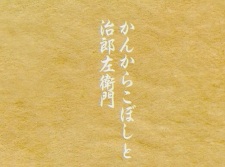 かんからこぼしと
治郎左衛門